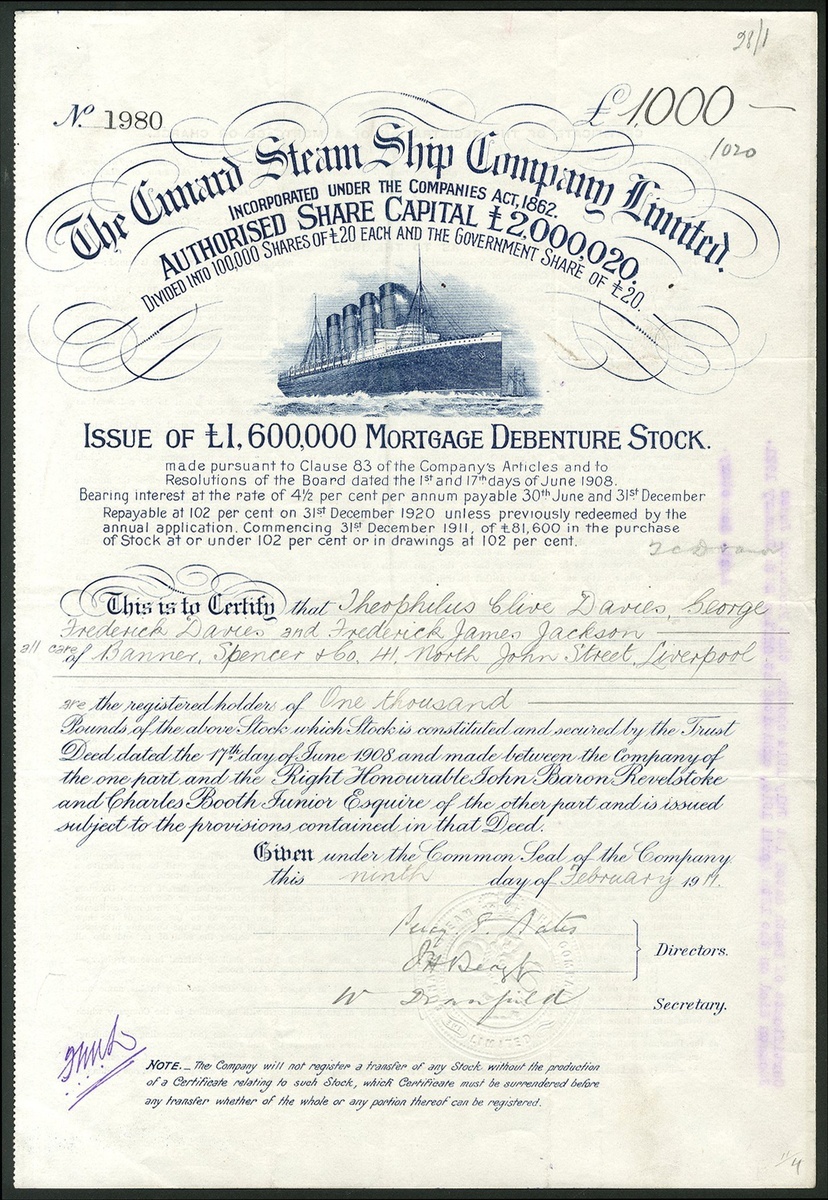 28/1
No. 1980
£1,000 —
1020
The Cunard Steam Ship Company Limited.
INCORPORATED UNDER THE COMPANIES ACT, 1862.
AUTHORISED SHARE CAPITAL £2,000,020.
DIVIDED INTO 100,000 SHARES OF £20 EACH AND THE GOVERNMENT SHARE OF £20.
ISSUE OF £1,600,000 MORTGAGE DEBENTURE STOCK.
made pursuant to Clause 83 of the Company's Articles and to
Resolutions of the Board dated the 1st and 17th days of June 1908.
Bearing interest at the rate of 4½ per cent per annum payable 30th June and 31st December
Repayable at 102 per cent on 31st December 1920 unless previously redeemed by the
annual application. Commencing 31st December 1911, of £81,600 in the purchase
of Stock at or under 102 per cent or in drawings at 102 per cent.
This is to Certify that Theophilus Clive Davies, George
Frederick Davies and Frederick James Jackson
all care of Banner, Spencer & Co, 41, North John Street, Liverpool
are the registered holders of One thousand
Pounds of the above Stock which Stock is constituted and secured by the Trust
Deed dated the 17th day of June 1908 and made between the Company of
the one part and the Right Honourable John Baron Revelstoke
and Charles Booth Junior Esquire of the other part and is issued
subject to the provisions contained in that Deed.
Given under the Common Seal of the Company
this ninth day of February 19
Percy E. Bates
Directors.
W Dranfield
Secretary.
LIMITED
NOTE._ The Company will not register a transfer of any Stock without the production
of a Certificate relating to such Stock, which Certificate must be surrendered before
any transfer whether of the whole or any portion thereof can be registered.
11/4